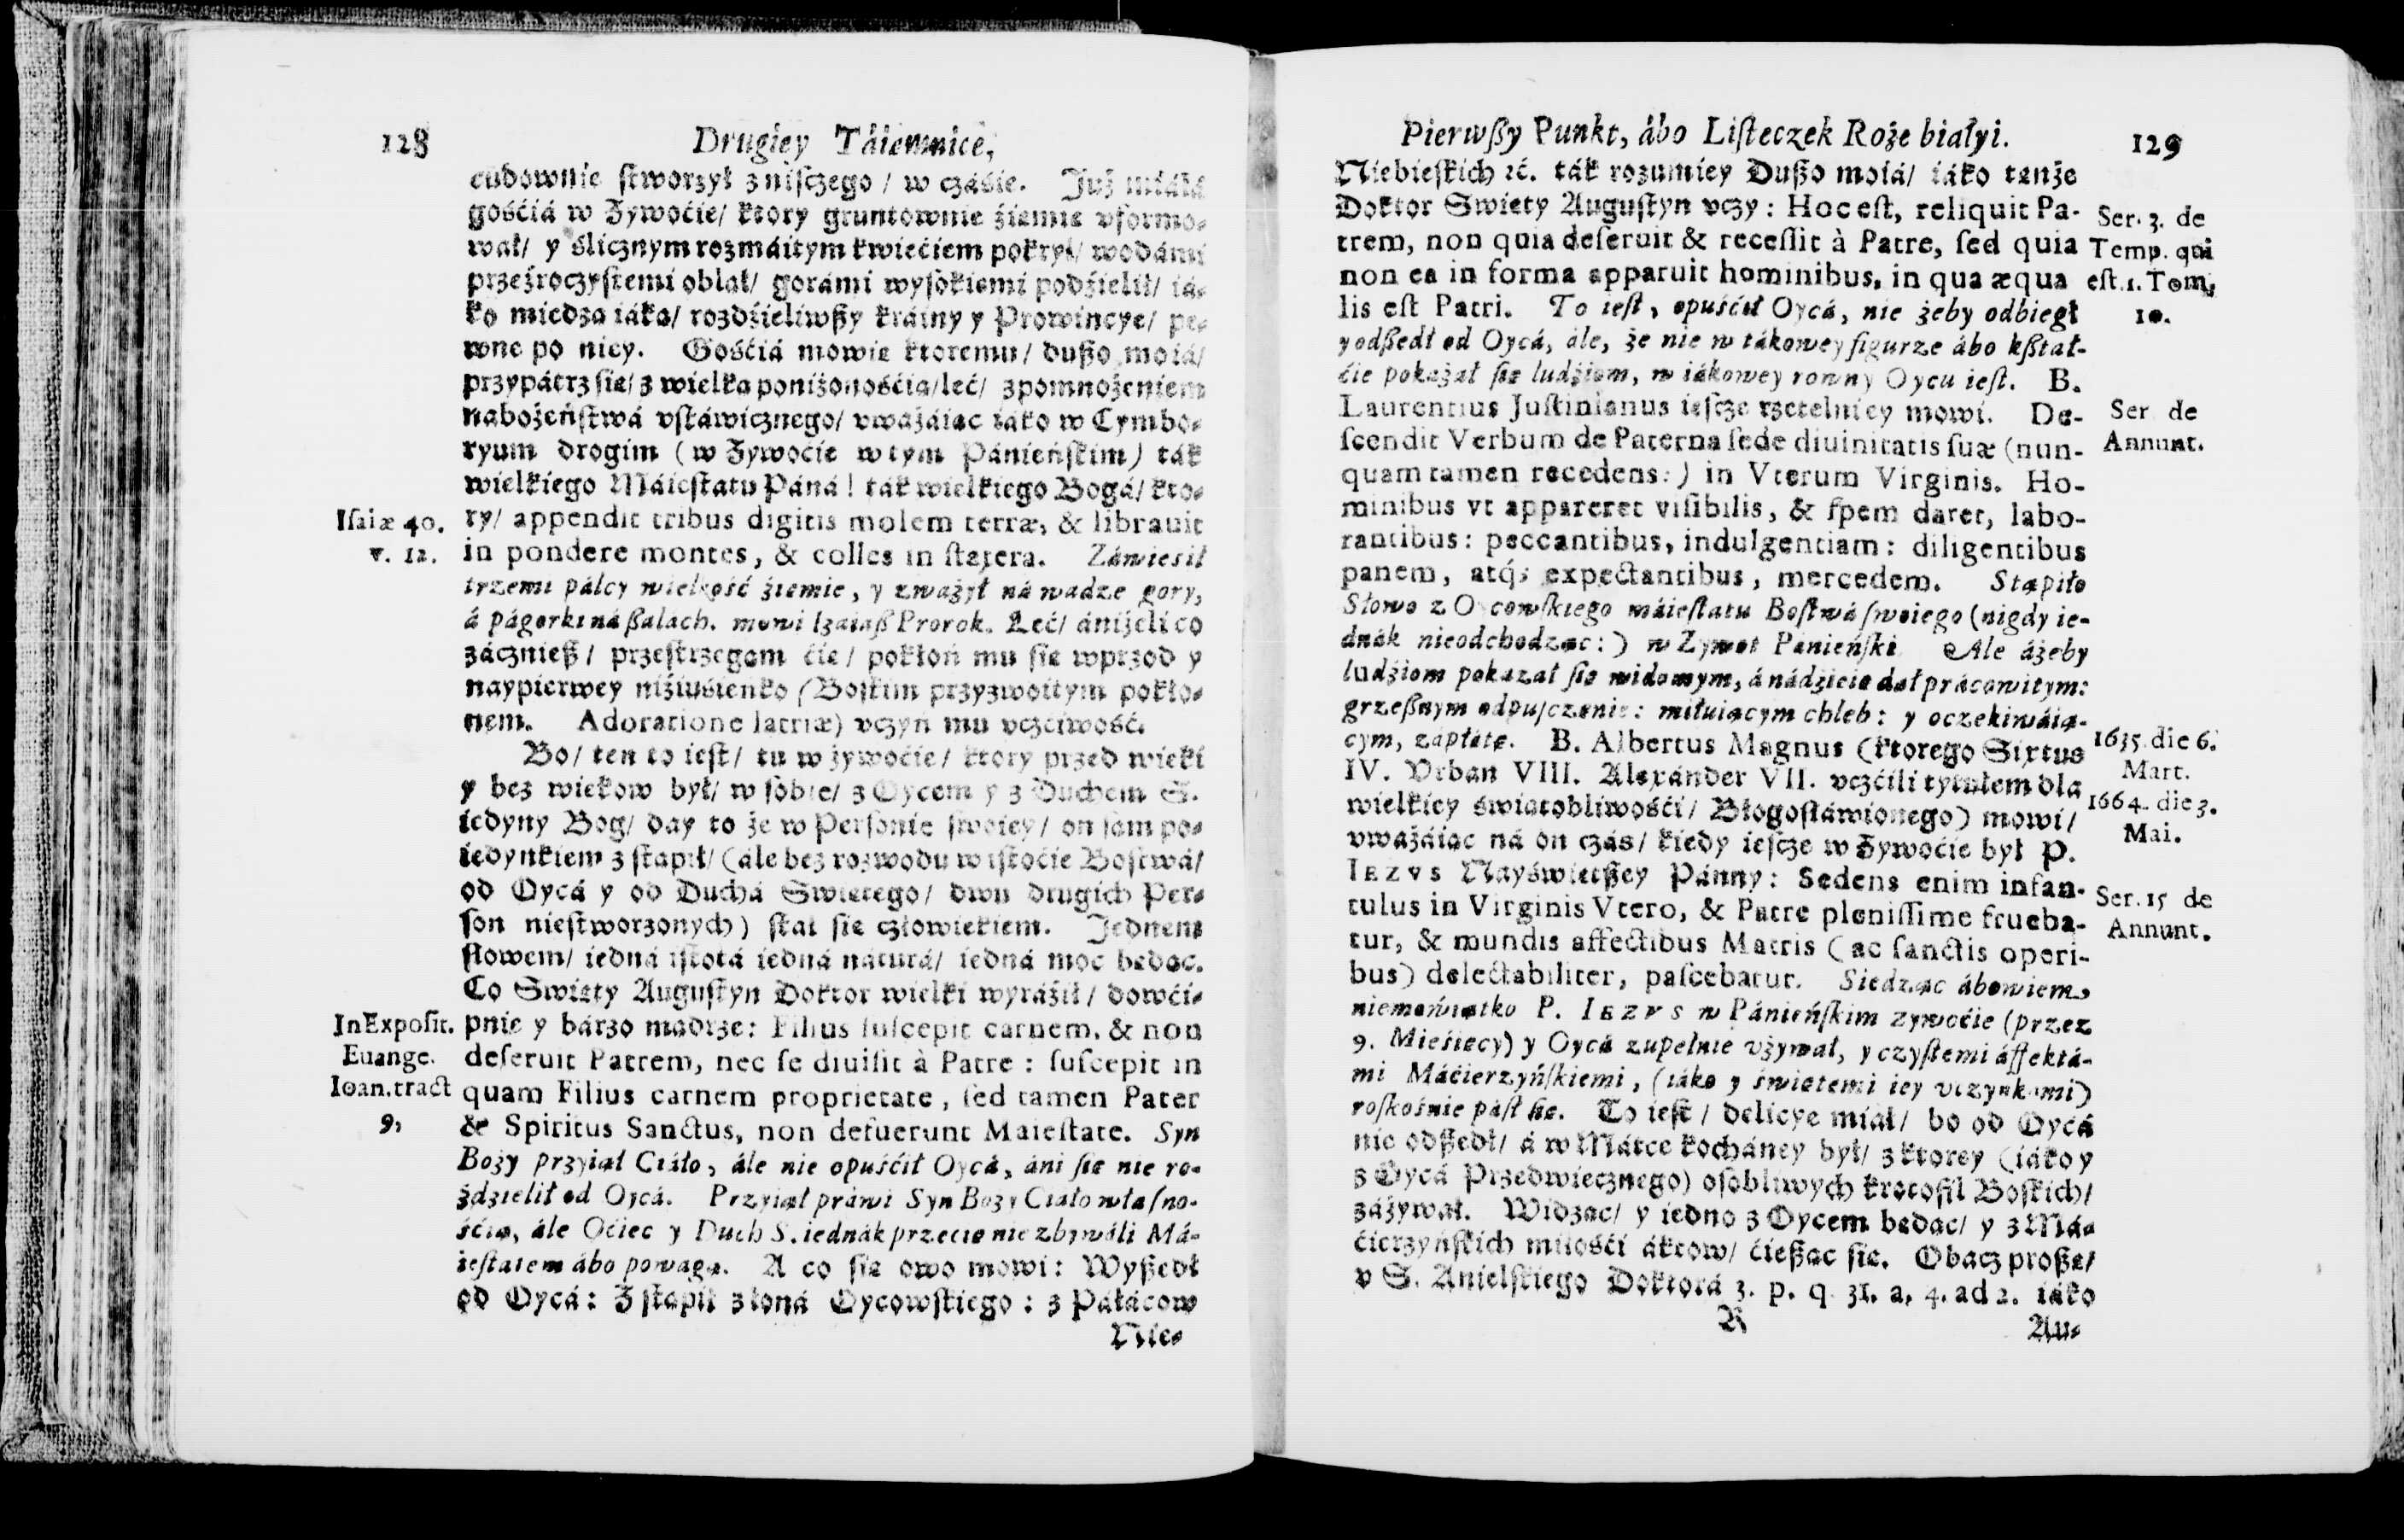 128 Drugiey Táiemnice,
cudownie ſtworzył z niſczego / w czáśie. Już miáłá
gośćiá w Zywoćie / ktory gruntownie źiemię vformo-
wał / y ślicznym rozmáitym kwiećiem pokrył / wodámi
przeźroczyſtemi oblał / gorámi wyſokiemi podźielił / iá-
ko miedzą iáką / rozdźieliwßy kráiny y Prowincye / pe-
wne po niey. Gośćiá mowię ktoremu / dußo moiá /
przypátrz ſię / z wielką poniżonośćią / leć / z pomnożeniem
nabożeńſtwá vſtáwicznego / vważáiąc iáko w Cymbo-
ryum drogim (w Zywoćie w tym Pánieńſkim) ták
wielkiego Máieſtatu Páná! ták wielkiego Bogá / kto-
Iſaiæ 40. ry / appendit tribus digitis molem terræ, & librauit
v. 12. in pondere montes, & colles in ſtatera. Záwieśił
trzemi pálcy wielkość źiemie, y zważył ná wadze gory,
á págorki ná ßalách. mowi Izaiaß Prorok. Leć / ániżeli co
zácznieß / przeſtrzegam ćię / pokłoń mu ſię wprzod y
naypierwey niźiuśieńko (Boſkim przyzwoitym pokło-
nem. Adoratione latriæ) vczyń mu vczćiwość.
Bo / ten to ieſt / tu w żywoćie / ktory przed wieki
y bez wiekow był / w ſobie / z Oycem y z Duchem S.
iedyny Bog / day to że w Perſonie ſwoiey / on ſam po-
iedynkiem zſtąpił / (ále bez rozwodu w iſtoćie Boſtwá /
od Oycá y od Duchá Swiętego / dwu drugich Per-
ſon nieſtworzonych) ſtał ſię człowiekiem. Jednem
ſłowem / iedná iſtotá iedná náturá / iedná moc będąc.
Co Swięty Auguſtyn Doktor wielki wyráźił / dowći-
In Expoſit. pnie y bárzo mądrze: Filius ſuſcepit carnem, & non
Euange. deſeruit Patrem, nec ſe diuiſit à Patre: ſuſcepit in
Ioan. tract quam Filius carnem proprietate, ſed tamen Pater
9, & Spiritus Sanctus, non defuerunt Maieſtate. Syn
Boży przyiął Ciáło, ále nie opuśćił Oycá, áni ſię nie ro-
źdźielił od Oycá. Przyiął práwi Syn Boży Ciáło właſno-
śćią, ále Oćiec y Duch S. iednák przecię nie zbywáli Má-
ieſtatem ábo powagą. A co ſię owo mowi: Wyßedł
od Oycá: Zſtąpił z łoná Oycowſkiego: z Páłácow
Nie-
Pierwßy Punkt, ábo Liſteczek Roże białyi. 129
Niebieſkich ꝛc. ták rozumiey Dußo moiá / iáko tenże
Doktor Swięty Auguſtyn vczy: Hoc eſt, reliquit Pa-
Ser. 3. de
trem, non quia deſeruit & receſſit à Patre, ſed quia
Temp. qui
non ea in forma apparuit hominibus, in qua æqua
eſt. 1. Tom,
lis eſt Patri. To ieſt, opuśćił Oycá, nie żeby odbiegł
10.
y odßedł od Oycá, ále, że nie w tákowey figurze ábo kßtał-
ćie pokazał ſię ludźiom, w iákowey rowny Oycu ieſt. B.
Laurentius Juſtinianus ieſcze rzetelniey mowi. De-
Ser. de
ſcendit Verbum de Paterna ſede diuinitatis ſuæ (nun-
Annunt.
quam tamen recedens:) in Vterum Virginis. Ho-
minibus vt appareret viſibilis, & ſpem daret, labo-
rantibus: peccantibus, indulgentiam: diligentibus
panem, atq́; expectantibus, mercedem. Stąpiło
Słowo z Oycowſkiego máieſtatu Boſtwá ſwoiego (nigdy ie-
dnák nieodchodząc:) w Zywot Pánieńſki. Ale áżeby
ludźiom pokazał ſię widomym, á nádźieię dał prácowitym:
grzeßnym odpuſczenie: miłuiącym chleb: y oczekiwáią-
cym, zápłátę. B. Albertus Magnus (ktorego Sixtus
1635. die 6.
IV. Vrban VIII. Alexánder VII. vczćili tytułem dla
Mart.
wielkiey świątobliwośći / Błogoſłáwionego) mowi /
1664. die 3.
vważáiąc ná on czás / kiedy ieſcze w Zywoćie był P.
Mai.
IEZVS Nayświętßey Pánny: Sedens enim infan-
Ser. 15 de
tulus in Virginis Vtero, & Patre pleniſſime frueba-
Annunt.
tur, & mundis affectibus Matris (ac ſanctis operi-
bus) delectabiliter, paſcebatur. Siedząc ábowiem
niemowiątko P. IEZVS w Pánieńſkim zywoćie (przez
9. Mieśięcy) y Oycá zupełnie vżywał, y czyſtemi áffektá-
mi Máćierzyńſkiemi, (iáko y świętemi iey vczynkami)
roſkośnie páſł ſię. To ieſt / delicye miał / bo od Oycá
nie odßedł / á w Mátce kocháney był / z ktorey (iáko y
z Oycá Przedwiecznego) oſobliwych krotofil Boſkich /
záżywał. Widząc / y iedno z Oycem będąc / y z Má-
ćierzyńſkich miłośći áktow / ćießąc ſię. Obacz proßę /
v S. Anielſkiego Doktorá 3. p. q. 31. a. 4. ad 2. iáko
R Au-